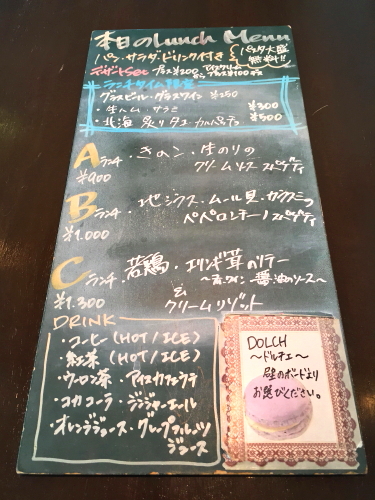 本日のLunch Menu
パン・サラダ・ドリンク付き
パスタ大盛
無料!!
デザートSet プラス¥200から
アイスクリーム
プラス¥100から
ランチタイム限定
・グラスビール・グラスワイン ¥250
・生ハム・サラミ ¥300
・北海炙りタコ カルパッチョ ¥500
Aランチ・きのこ・生のりの
クリームソース スパゲティ
¥900
Bランチ・地シラス・ムール貝・
ペペロンチーノ スパゲティ
¥1.000
Cランチ・若鶏・エリンギ茸のソテー
～赤ワイン醤油のソース～
クリームリゾット
¥1.300
DRINK
・コーヒー (HOT/ICE)
・紅茶 (HOT/ICE)
・ウーロン茶・アイスカフェラテ
・コカコーラ・ジンジャーエール
・オレンジジュース・グレープフルーツ
ジュース
DOLCH
～ドルチェ～
壁のボードより
お選びください。